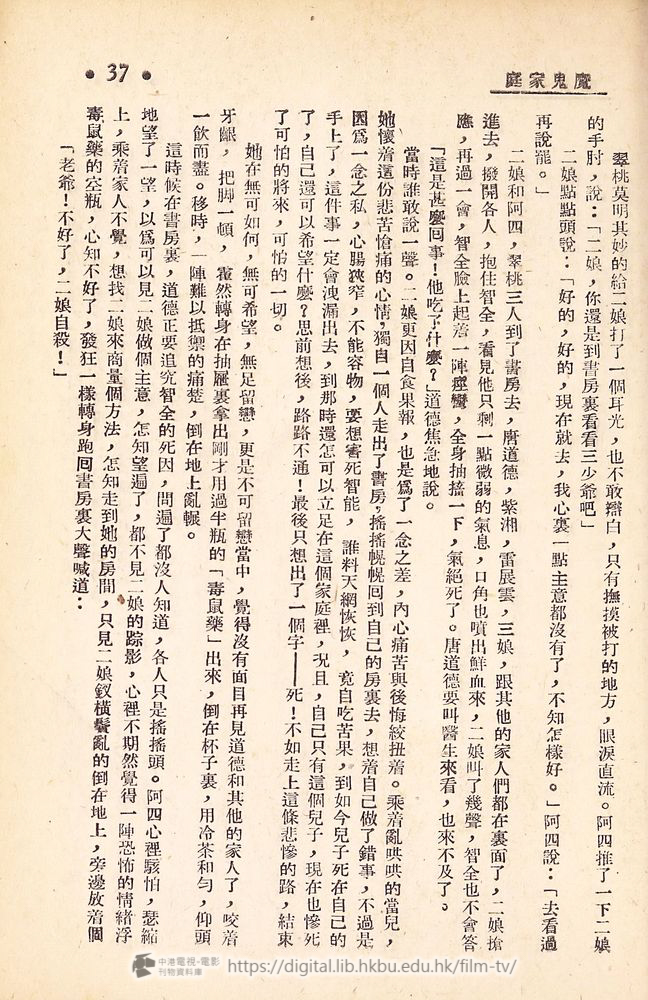 魔鬼家庭
• 37 •
翠桃莫明其妙的給二娘打了一個耳光，也不敢辯白，只有撫摸被打的地方，眼淚直流。阿四推了一下二娘
的手肘，說：「二娘，你還是到書房裏看看三少爺吧」
二娘點點頭說：「好的，好的，現在就去，我心裏一點主意都沒有了，不知怎樣好。」阿四說：「去看過
再說罷。」
二娘和阿四，翠桃三人到了書房去，唐道德，紫湘，雷展雲，三娘，跟其他的家人們都在裏面了，二娘搶
進去，撥開各人，抱住智全，看見他只剩一點微弱的氣息，口角也噴出鮮血來，二娘叫了幾聲，智全也不會答
應，再過一會，智全臉上起着一陣痙攣，全身抽搐一下，氣絕死了。唐道德要叫醫生來看，也來不及了。
「這是甚麼囘事！他吃了什麼？」道德焦急地說。
當時誰敢說一聲。二娘更因自食果報，也是爲了一念之差，內心痛苦與後悔絞扭着。乘着亂哄哄的當兒，
她懷着這份悲苦愴痛的心情，獨自一個人走出了書房，搖搖幌幌囘到自己的房裏去，想着自己做了錯事，不過是
因爲一念之私，心腸狹窄，不能容物，要想害死智能，誰料天網恢恢，竟自吃苦果，到如今兒子死在自己的
手上了，這件事一定會洩漏出去，到那時還怎可以立足在這個家庭裡，况且，自己只有這個兒子，現在也慘死
了，自己還可以希望什麼？思前想後，路路不通！最後只想出了一個字——死！不如走上這條悲慘的路，結束
了可怕的將來，可怕的一切。
她在無可如何，無可希望，無足留戀，更是不可留戀當中，覺得沒有面目再見道德和其他的家人了，咬着
牙齦，把脚一頓，霍然轉身在抽屜裏拿出剛才用過半瓶的「毒鼠藥」出來，倒在杯子裏，用冷茶和勻，仰頭
一飲而盡。移時，一陣難以抵禦的痛楚，倒在地上亂輾。
這時候在書房裏，道德正要追究智全的死因，問遍了都沒人知道，各人只是搖搖頭。阿四心裡駭怕，瑟縮
地望了一望，以爲可以見二娘做個主意，怎知望遍了，都不見二娘的踪影，心裡不期然覺得一陣恐怖的情緒浮
上，乘着家人不覺，想找二娘來商量個方法，怎知走到她的房間，只見二娘釵橫鬢亂的倒在地上，旁邊放着個
毒鼠藥的空瓶，心知不好了，發狂一樣轉身跑囘書房裏大聲喊道：
「老爺！不好了，二娘自殺！」
中港電視-電影
刊物資料庫
https://digital.lib.hkbu.edu.hk/film-tv/